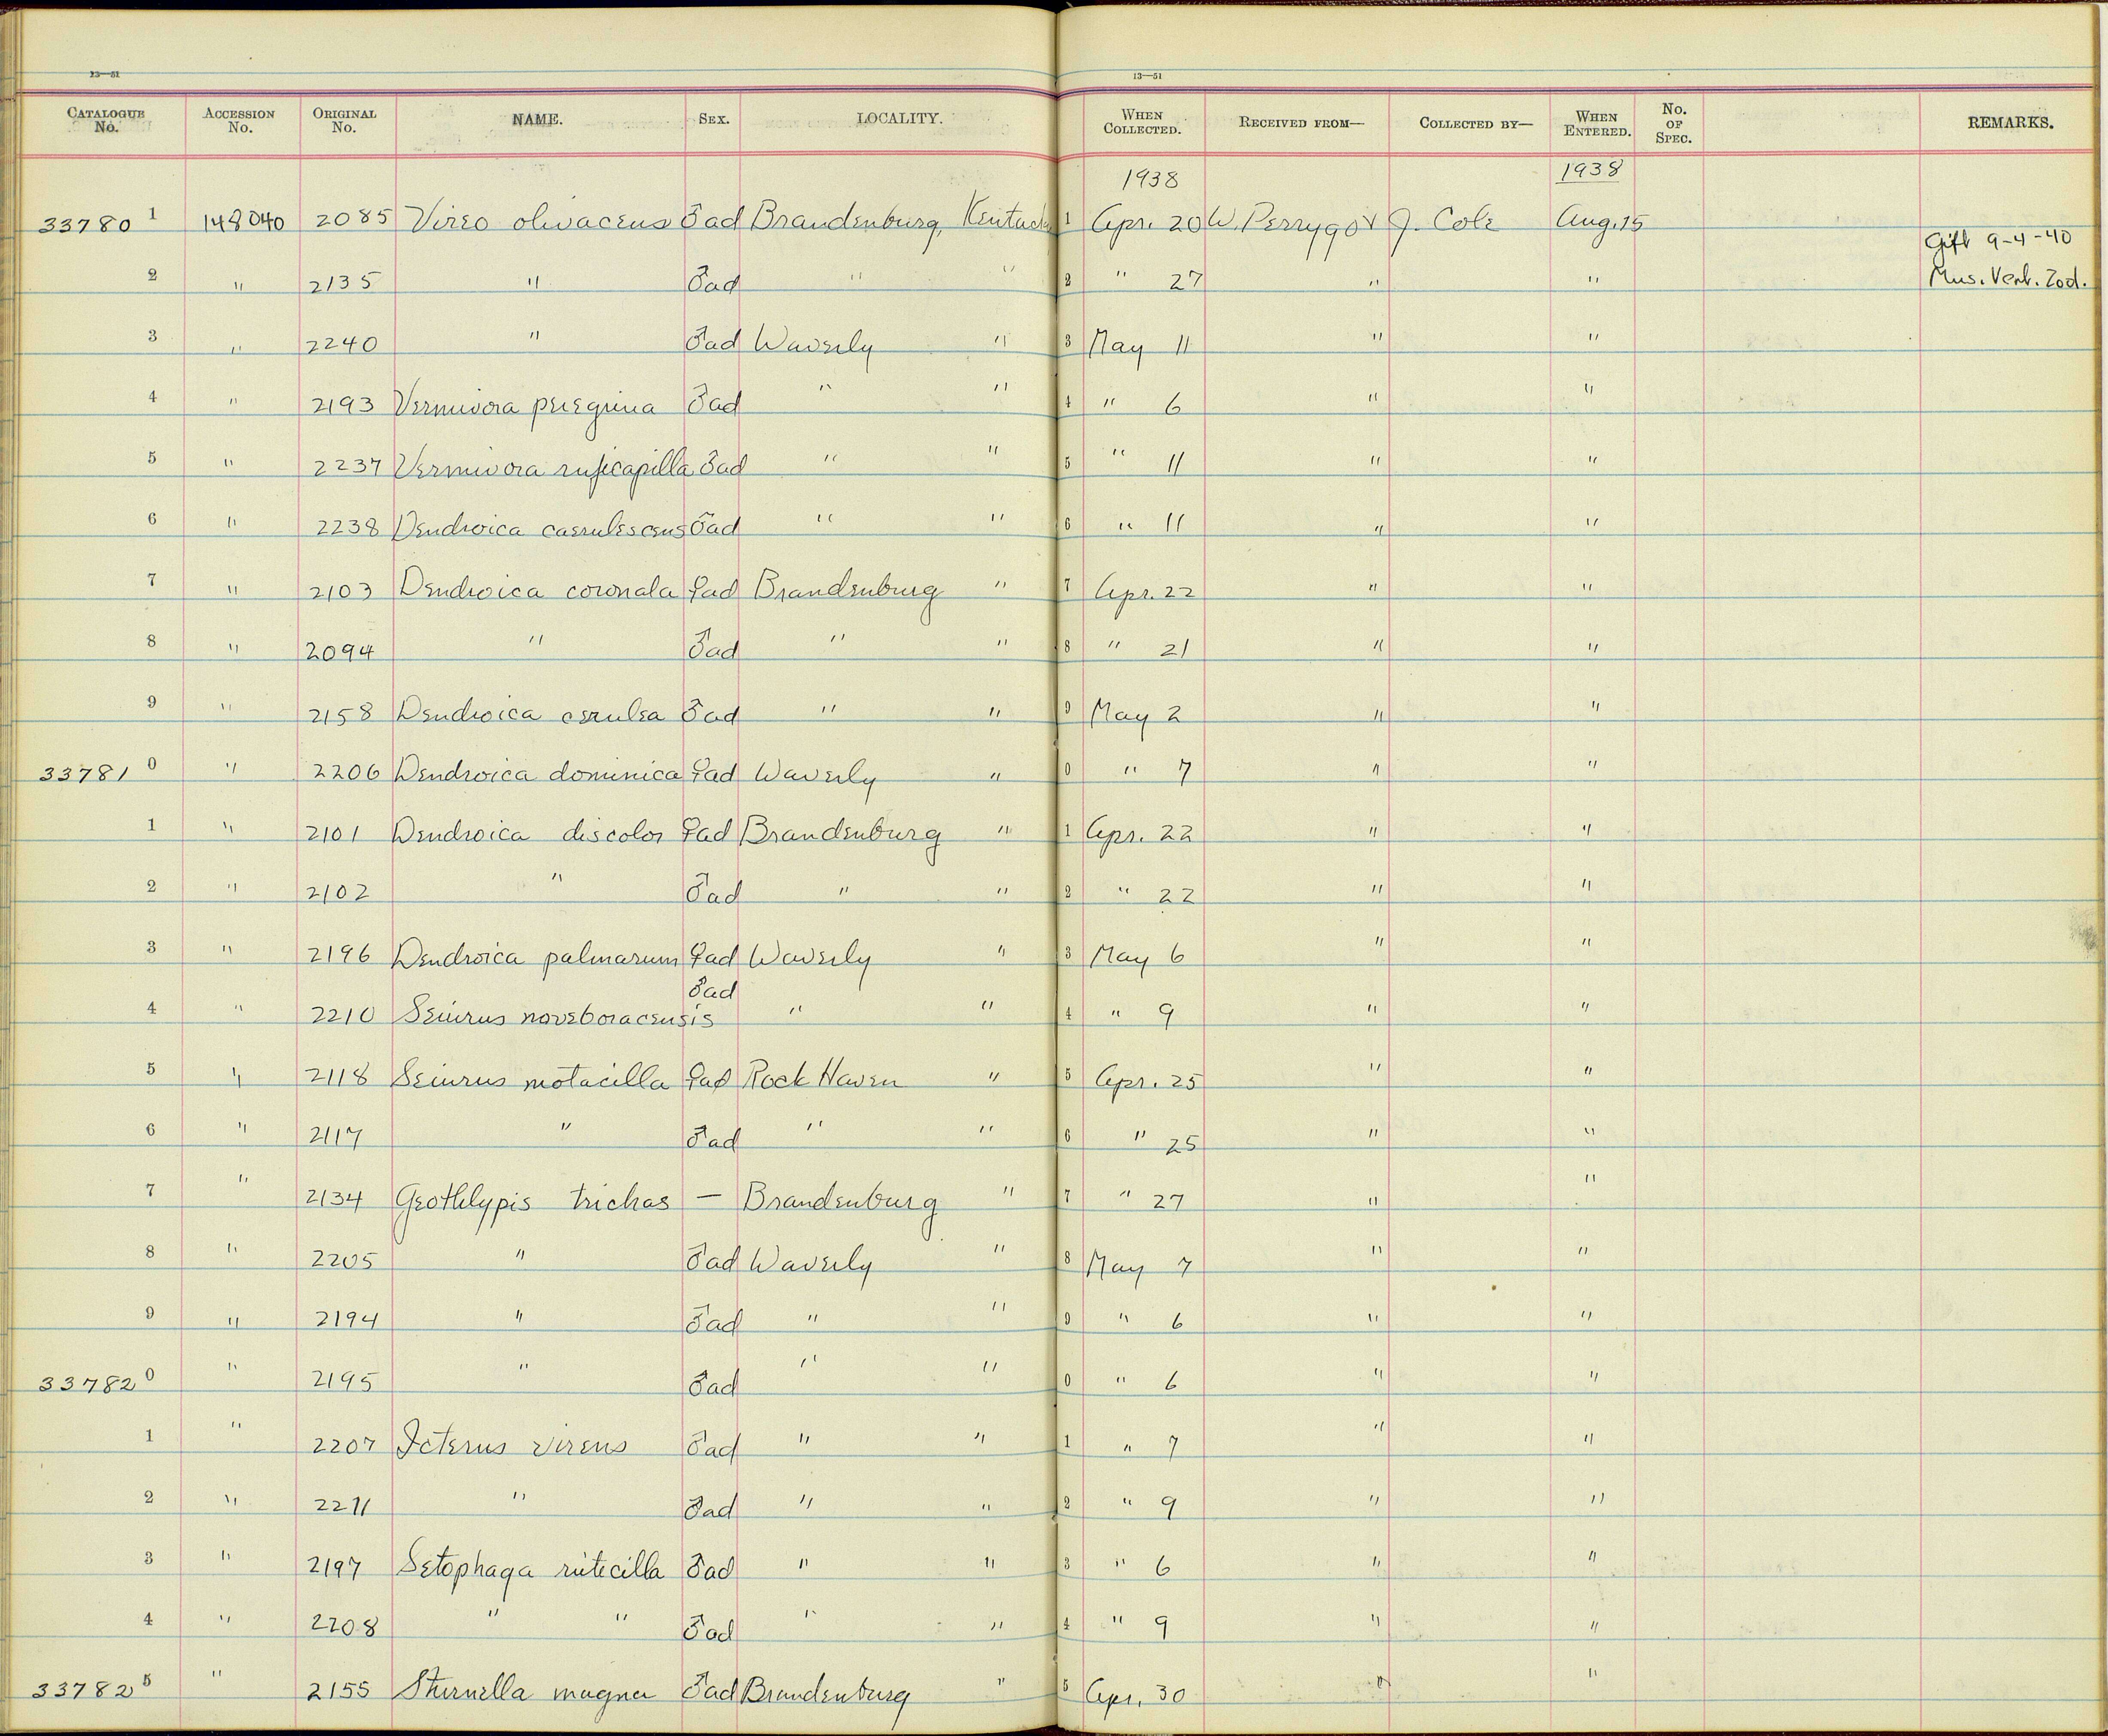 13—51 13—51
CATALOGUE No. ACCESSION No. ORIGINAL No. NAME. SEX. LOCALITY. WHEN COLLECTED. RECEIVED FROM— COLLECTED BY— WHEN ENTERED. No. OF SPEC. REMARKS.
1938 1938
33780 1 148040 2085 Vireo olivaceus ♂ad Brandenburg, Kentucky 1 Apr. 20 W. Perrygo & J. Cole Aug. 15
Gift 9-4-40
2 " 2135 " ♂ad " " 2 " 27 " " Mus. Vert. Zool.
3 " 2240 " ♂ad Waverly " 3 May 11 " "
4 " 2193 Vermivora peregrina ♂ad " " 4 " 6 " "
5 " 2237 Vermivora ruficapilla ♂ad " " 5 " 11 " "
6 " 2238 Dendroica caerulescens ♂ad " " 6 " 11 " "
7 " 2103 Dendroica coronata ♀ad Brandenburg " 7 Apr. 22 " "
8 " 2094 " ♂ad " " 8 " 21 " "
9 " 2158 Dendroica cerulea ♂ad " " 9 May 2 " "
33781 0 " 2206 Dendroica dominica ♀ad Waverly " 0 " 7 " "
1 " 2101 Dendroica discolor ♀ad Brandenburg " 1 Apr. 22 " "
2 " 2102 " ♂ad " " 2 " 22 " "
3 " 2196 Dendroica palmarum ♀ad Waverly " 3 May 6 " "
4 " 2210 Seiurus noveboracensis ♂ad " " 4 " 9 " "
5 " 2118 Seiurus motacilla ♀ad Rock Haven " 5 Apr. 25 " "
6 " 2117 " ♂ad " " 6 " 25 " "
7 " 2134 Geothlypis trichas — Brandenburg " 7 " 27 " "
8 " 2205 " ♂ad Waverly " 8 May 7 " "
9 " 2194 " ♂ad " " 9 " 6 " "
33782 0 " 2195 " ♂ad " " 0 " 6 " "
1 " 2207 Icterus virens ♂ad " " 1 " 7 " "
2 " 2211 " ♂ad " " 2 " 9 " "
3 " 2197 Setophaga ruticilla ♂ad " " 3 " 6 " "
4 " 2208 " " ♂ad " " 4 " 9 " "
33782 5 " 2155 Sturnella magna ♂ad Brandenburg " 5 Apr. 30 " "